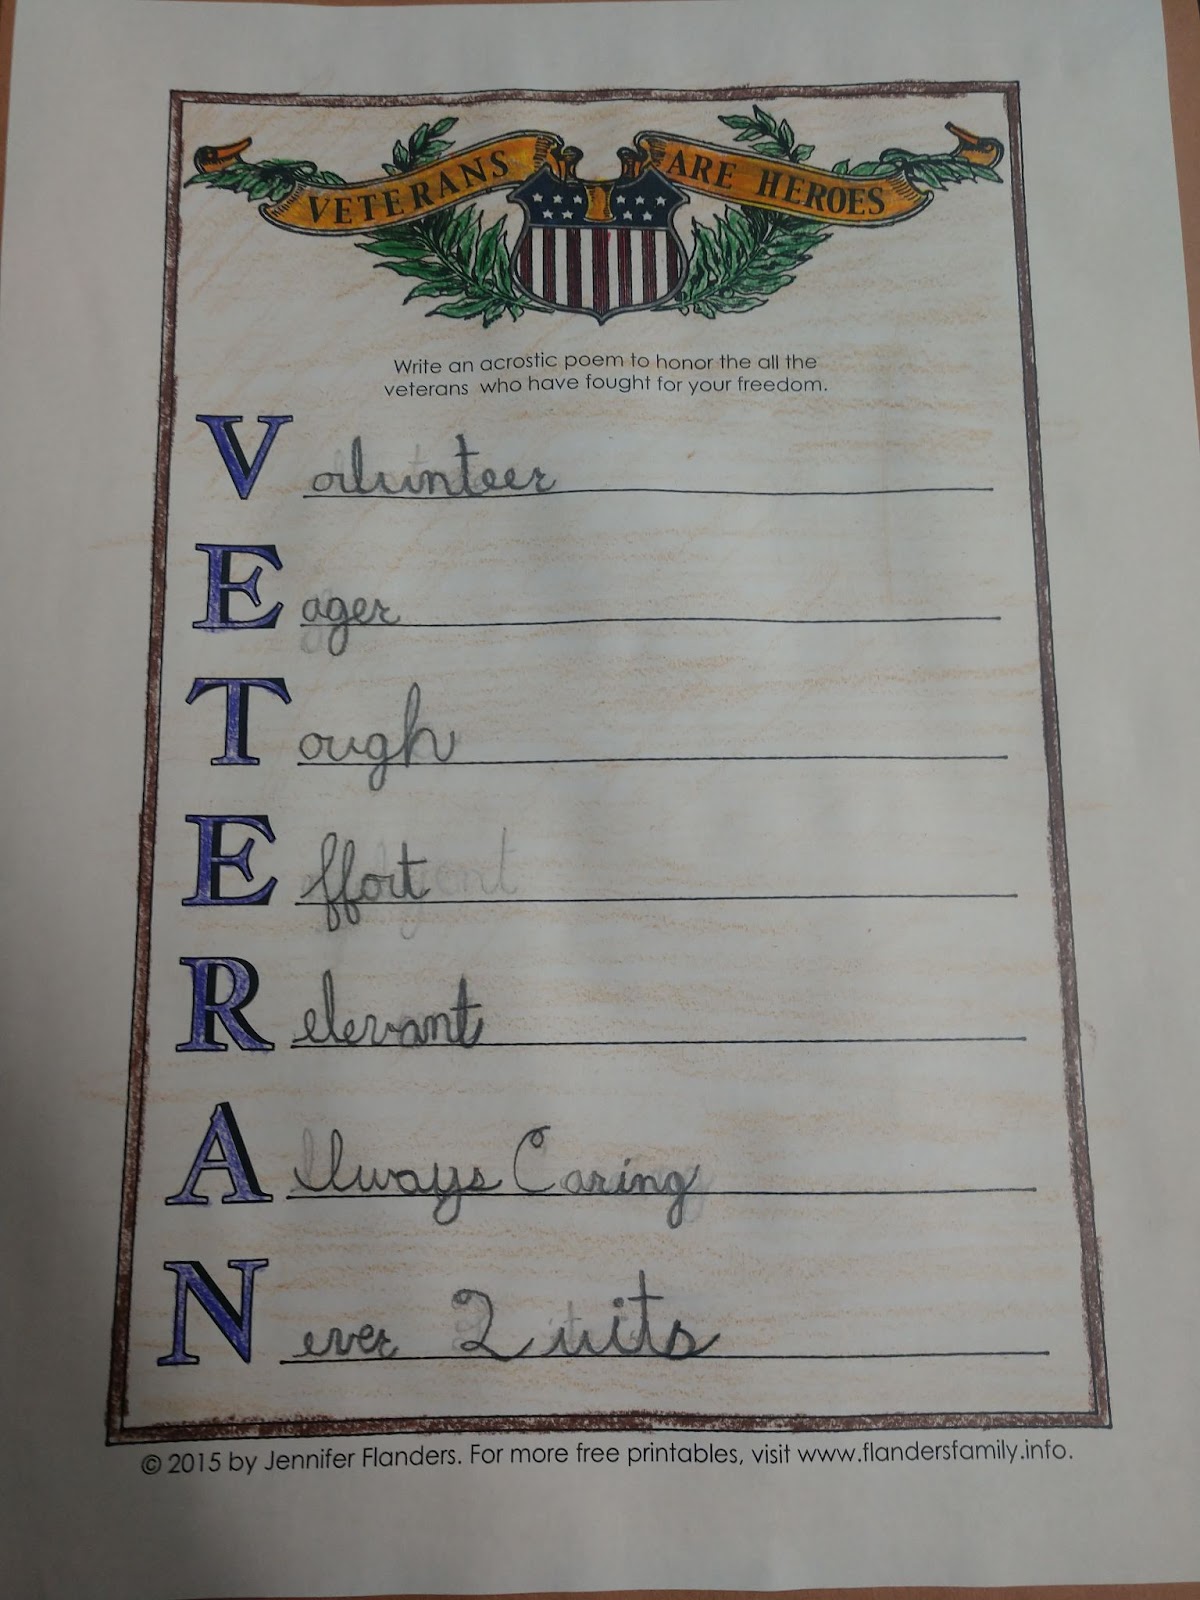 VETERANS ARE HEROES
Write an acrostic poem to honor the all the
veterans who have fought for your freedom.
Volunteer
Eager
Tough
Effort
Relevant
Always Caring
Never Quits
© 2015 by Jennifer Flanders. For more free printables, visit www.flandersfamily.info.